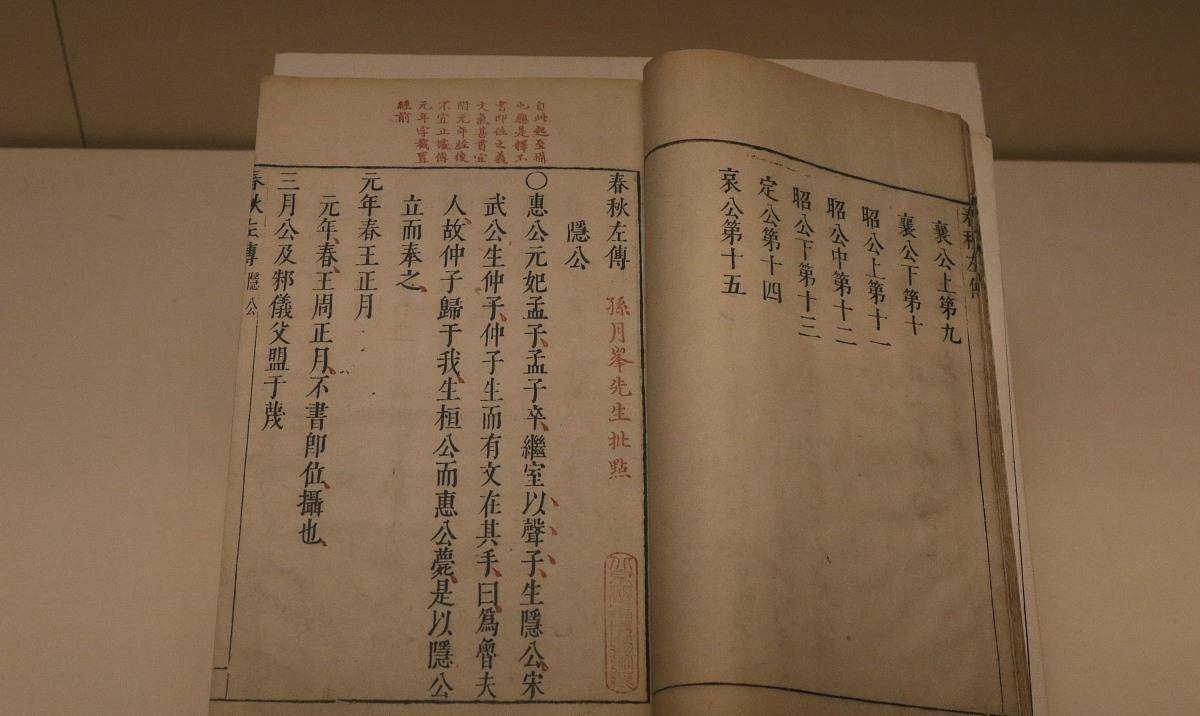 春秋左傳
襄公上第九
襄公下第十
昭公上第十一
昭公中第十二
昭公下第十三
定公第十四
哀公第十五
自此起至攝
也總是釋不
書即位之義
文氣甚貫宜
附元年經後
不宜止據傳
元年字截置
經前
春秋左傳 孫月峯先生批點
隱公
〇惠公元妃孟子孟子卒繼室以聲子生隱公宋
武公生仲子仲子生而有文在其手曰爲魯夫
人故仲子歸于我生桓公而惠公薨是以隱公
立而奉之
元年春王正月
元年春王周正月不書即位攝也
三月公及邾儀父盟于蔑
春秋左傳 隱公 一